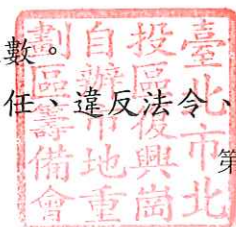 數。
任、違反法令、
第
臺北市北
投區復興崗
自辦市地重
劃區籌備會